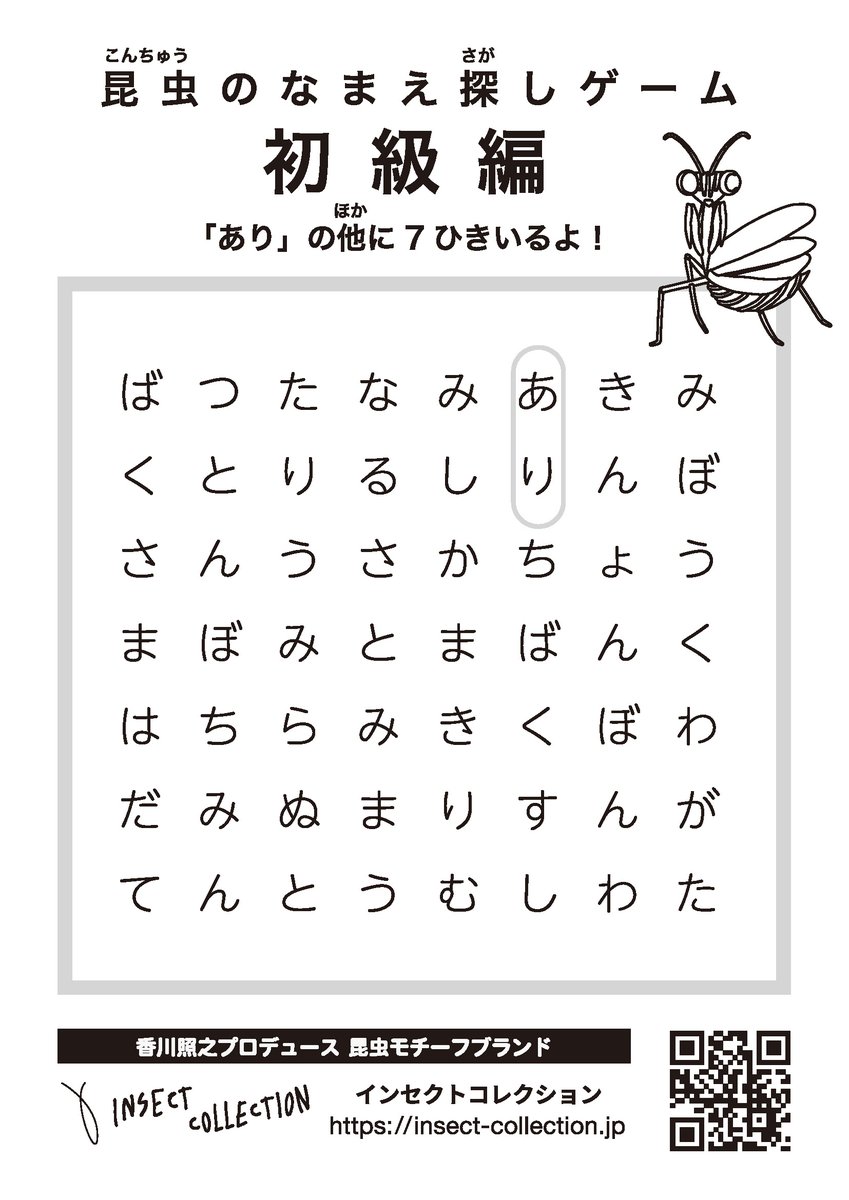 こんちゅう さが
昆虫のなまえ探しゲーム
初級編
ほか
「あり」の他に7ひきいるよ!
ば つ た な み あ き み
く と り る し り ん ぼ
さ ん う さ か ち ょ う
ま ぼ み と ま ば ん く
は ち ら み き く ぼ わ
だ み ぬ ま り す ん が
て ん と う む し わ た
香川照之プロデュース 昆虫モチーフブランド
INSECT COLLECTION
インセクトコレクション
https://insect-collection.jp